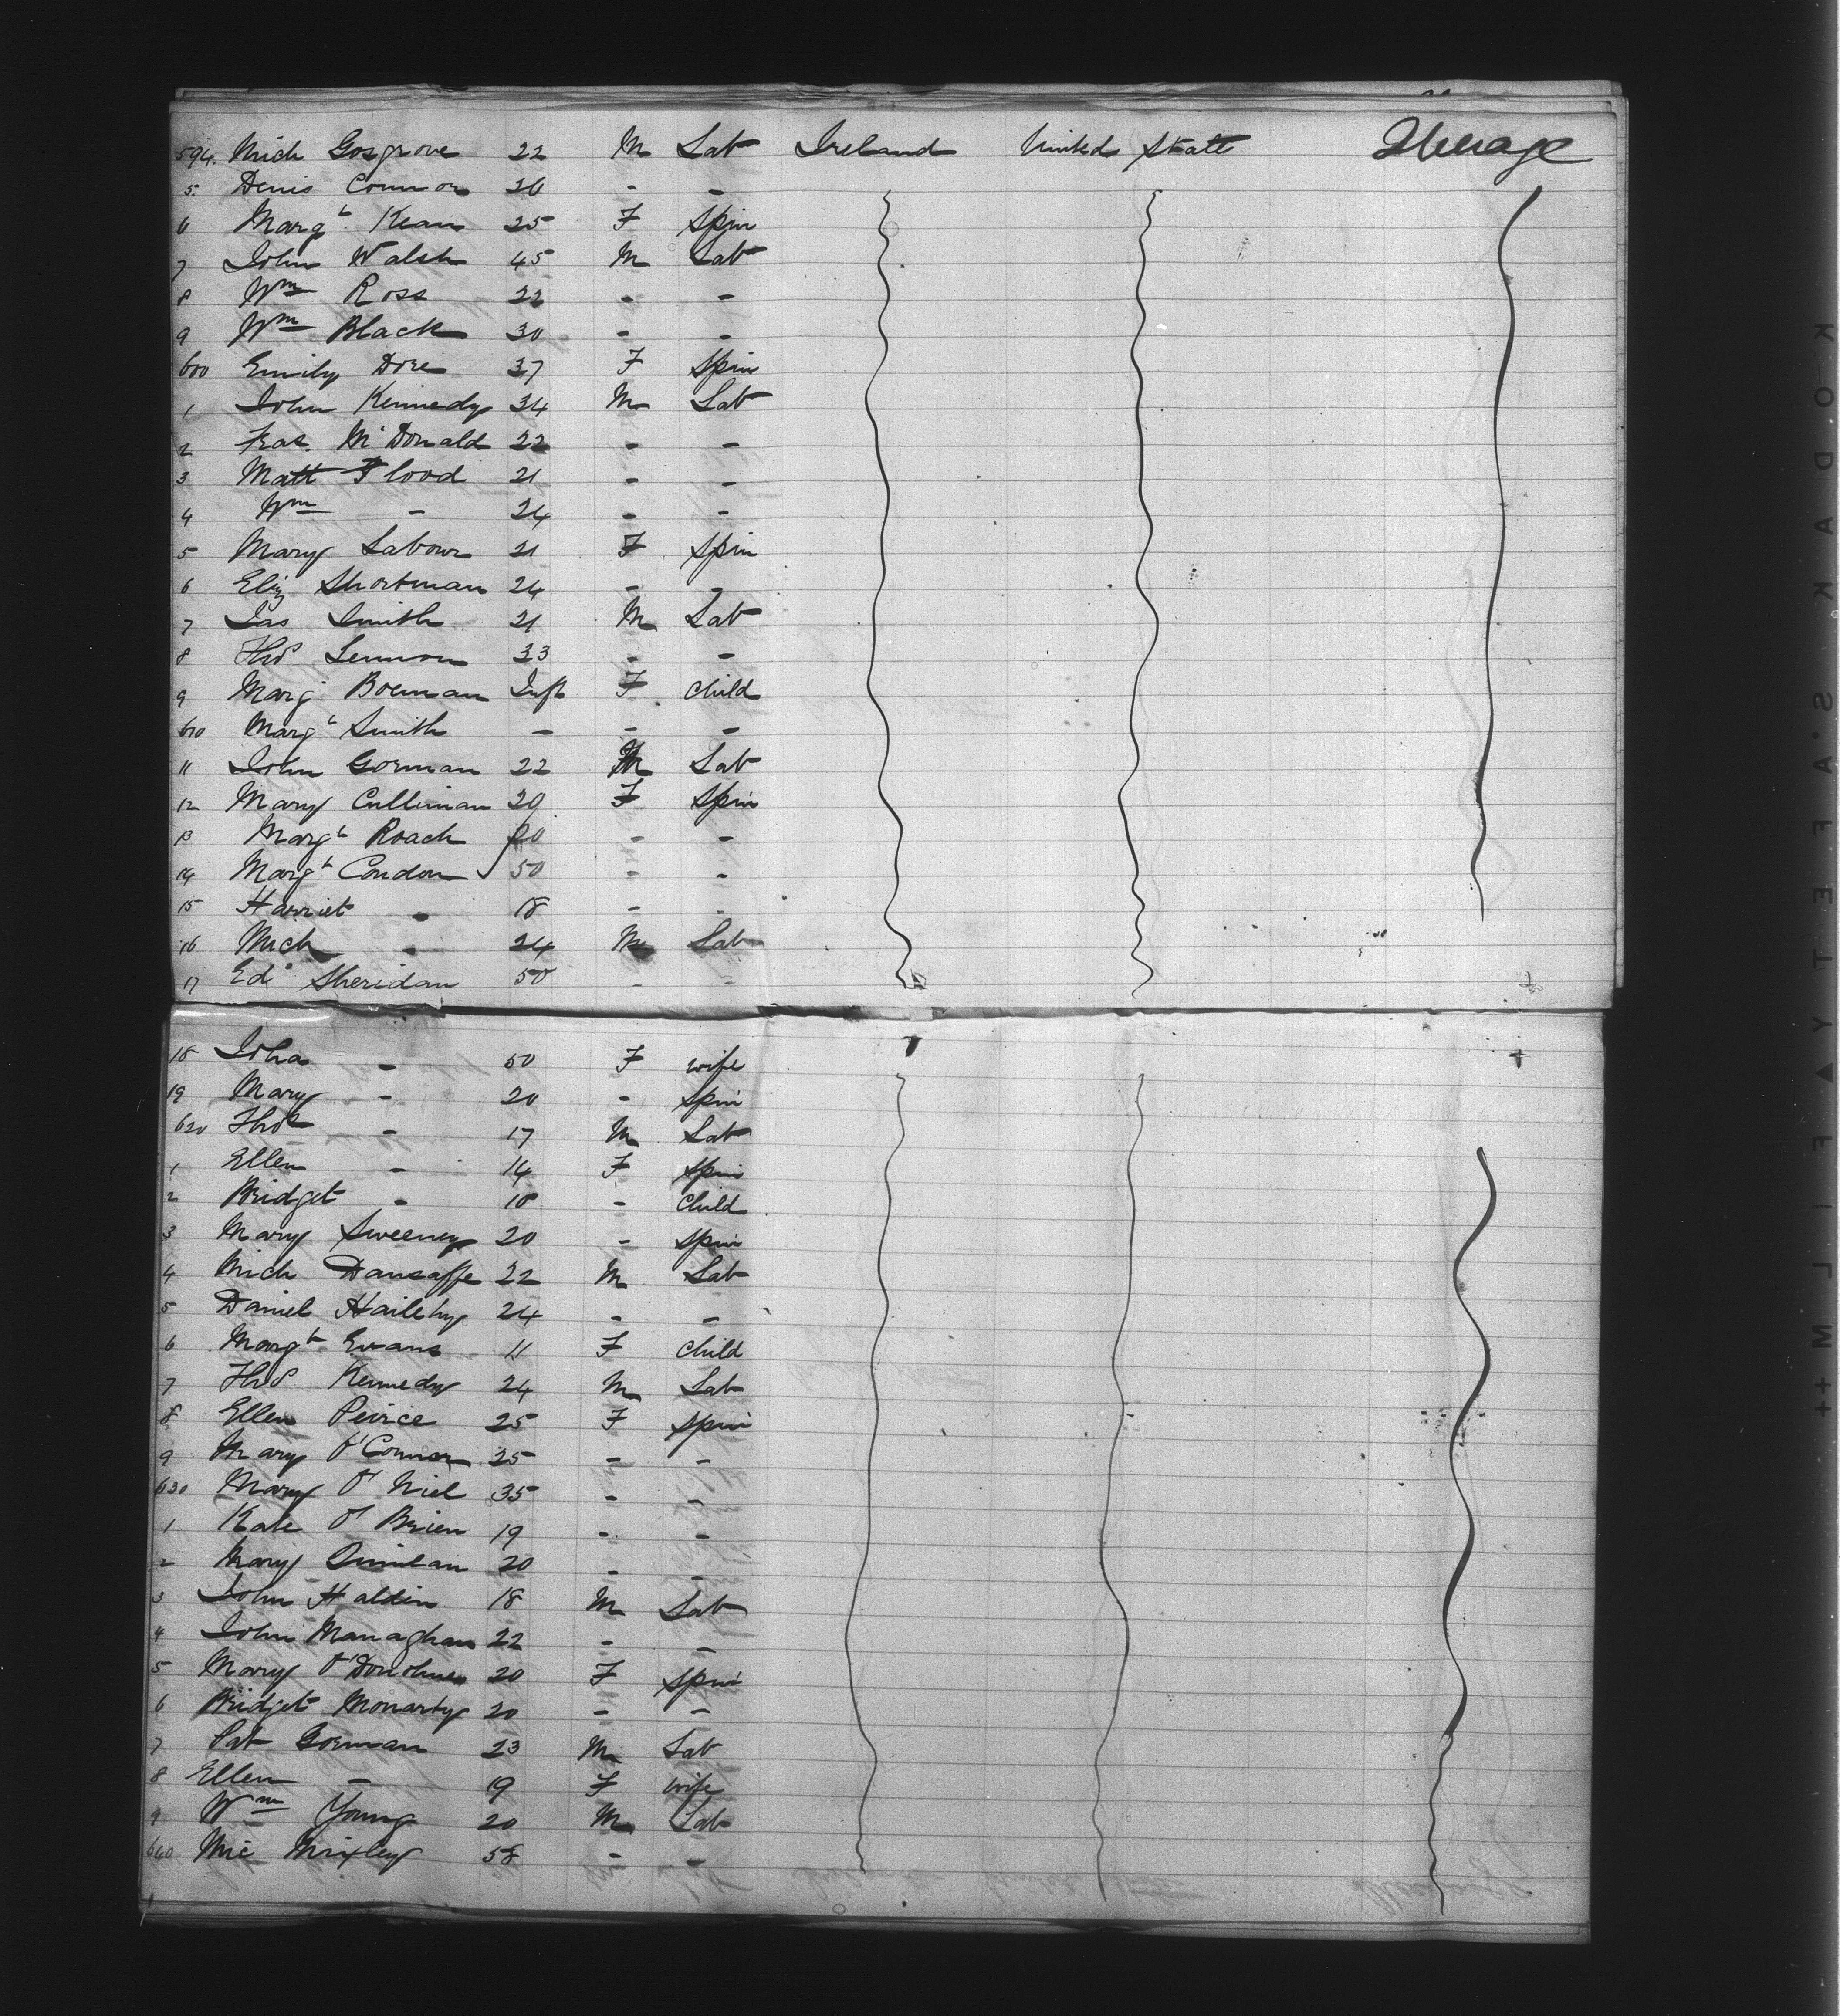 594. Mich Cosgrove 22 M Lab Ireland United State Steerage
5. Denis Connor 26 - -
6 Margt. Kean 25 F Spin
7 John Walsh 45 M Lab
8 Wm Ross 22 - -
9 Wm Black 30 - -
600 Emily Dore 37 F Spin
1 John Kennedy 34 M Lab
2 Fras. McDonald 22 - -
3 Matt Flood 21 - -
4 Wm - 24 - -
5 Mary Labour 21 F Spin
6 Eliz Shortman 24 - -
7 Jas Smith 21 M Lab
8 Thos Lennon 33 - -
9 Marg Boeman Inft F Child
610 Margt Smith - - -
11 John Gorman 22 M Lab
12 Mary Cullinan 29 F Spin
13 Margt Roach 20 - -
14 Margt Condon 50 - -
15 Harriet - 18 - -
16 Mich - 24 M Lab
17 Ed Sheridan 50 - -
18 - 50 F wife
19 Mary - 20 - Spin
620 Thos - 17 M Lab
1 Ellen - 14 F Spin
2 Bridget - 10 - Child
3 Mary Sweeney 20 - Spin
4 Mich 22 M Lab
5 Daniel 24 - -
6 Margt Evans 11 F Child
7 Thos Kennedy 24 M Lab
8 Ellen Peirce 25 F Spin
9 Mary O'Connor 25 - -
630 Mary O'Niel 35 - -
1 Kate O'Brien 19 - -
2 Mary Quinlan 20 - -
3 John Haldin 18 M Lab
4 John Managhan 22 - -
5 Mary O'Donohue 20 F Spin
6 Bridget Moriarty 20 - -
7 Pat Gorman 23 M Lab
8 Ellen - 19 F wife
9 Wm Young 20 M Lab
640 Mic Mixley 58 - -
KODAK·SAFETY▲FILM++